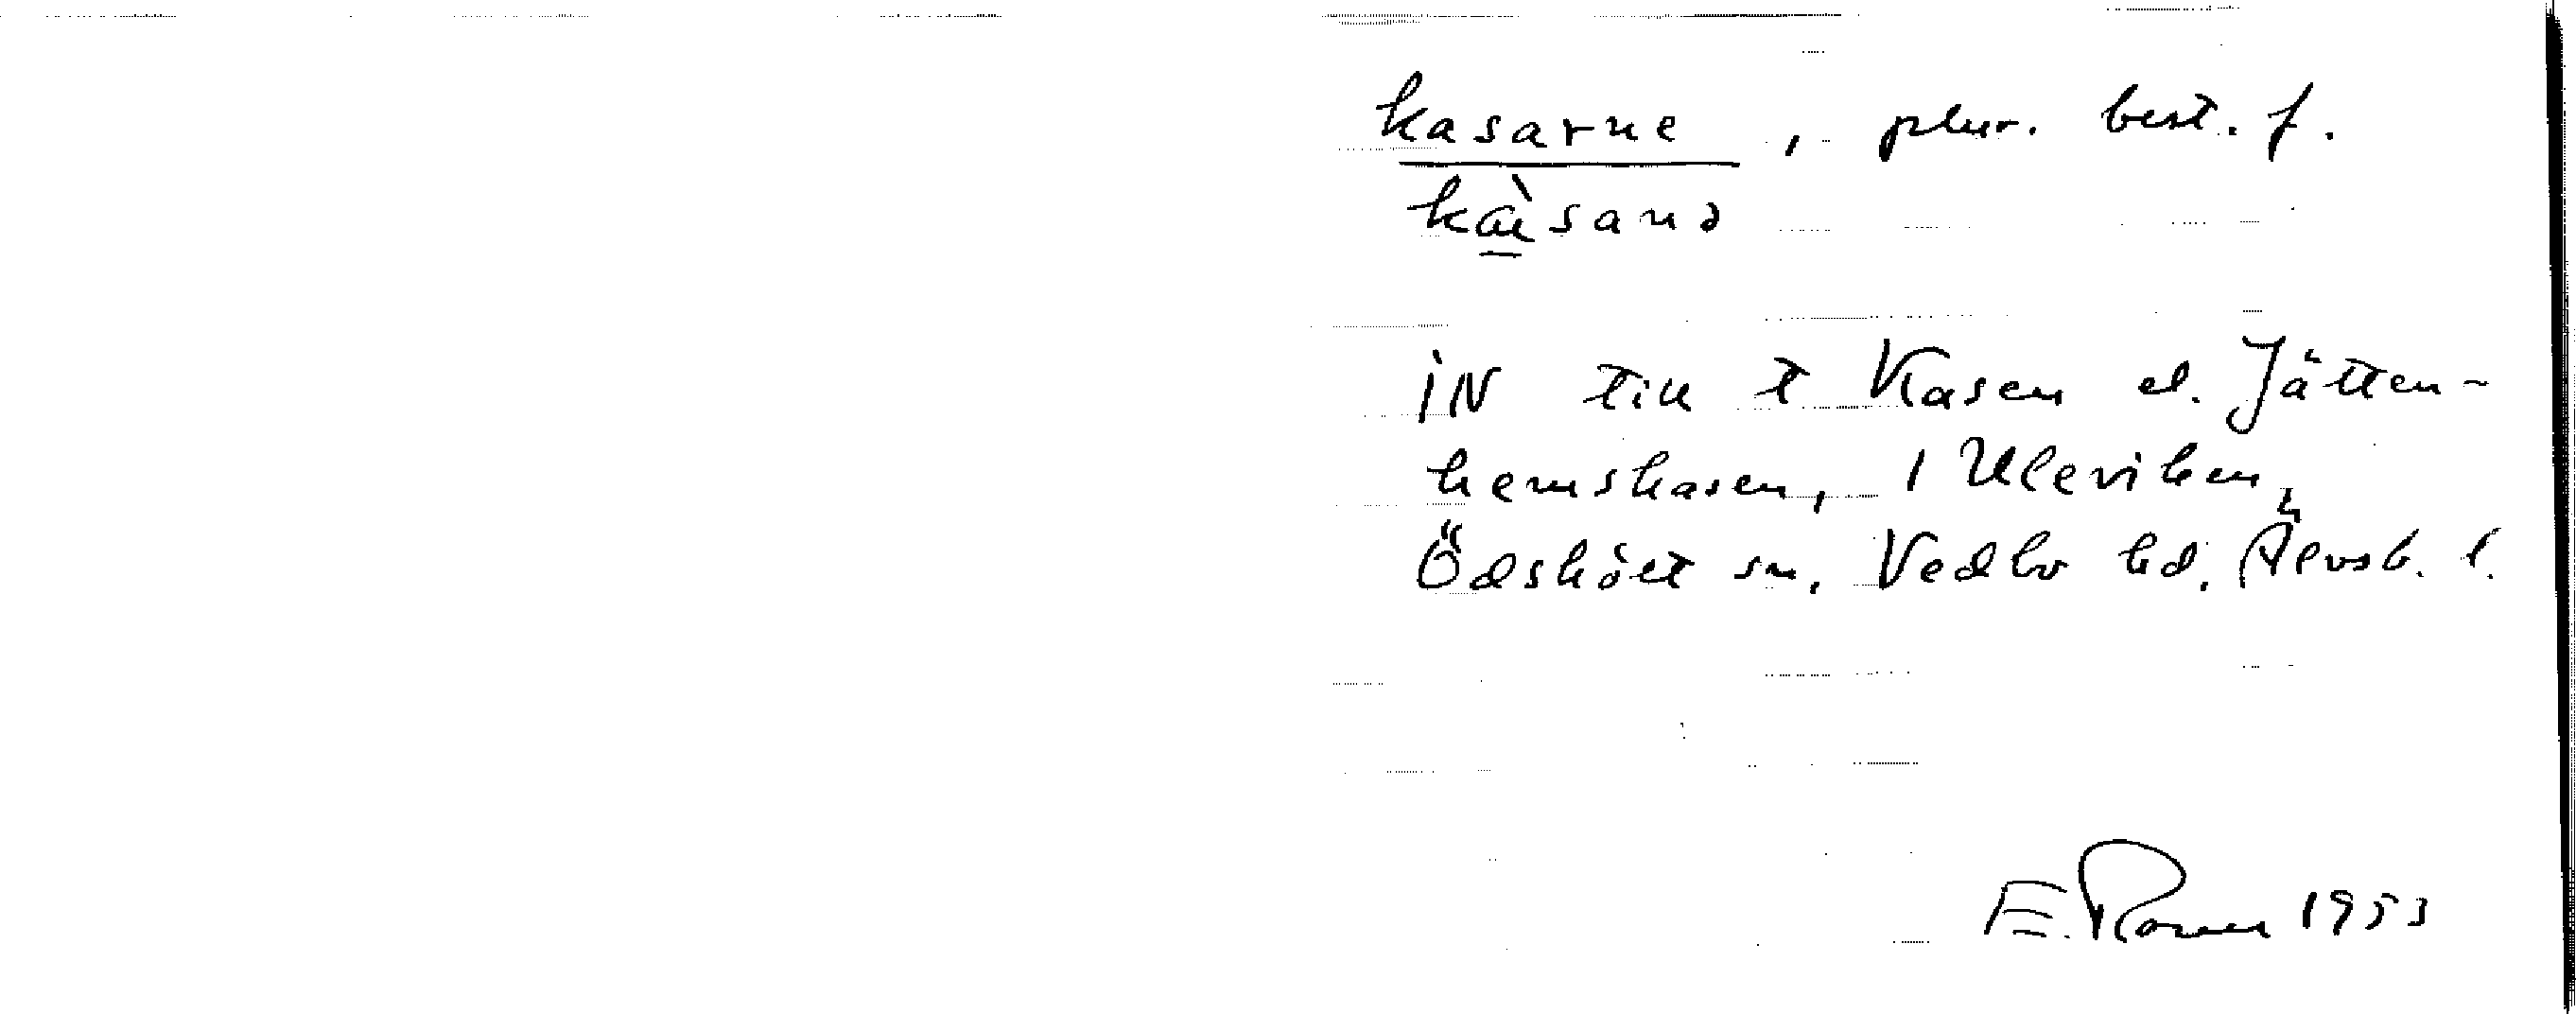 kasarne, plur. best. f.
kàsanə
IN till t Kasen el. Jätten-
hemskasen, 1 Uleviken,
Ödskölt sn. Vedbo hd. Älvsb. l.
E. Rosen 1953